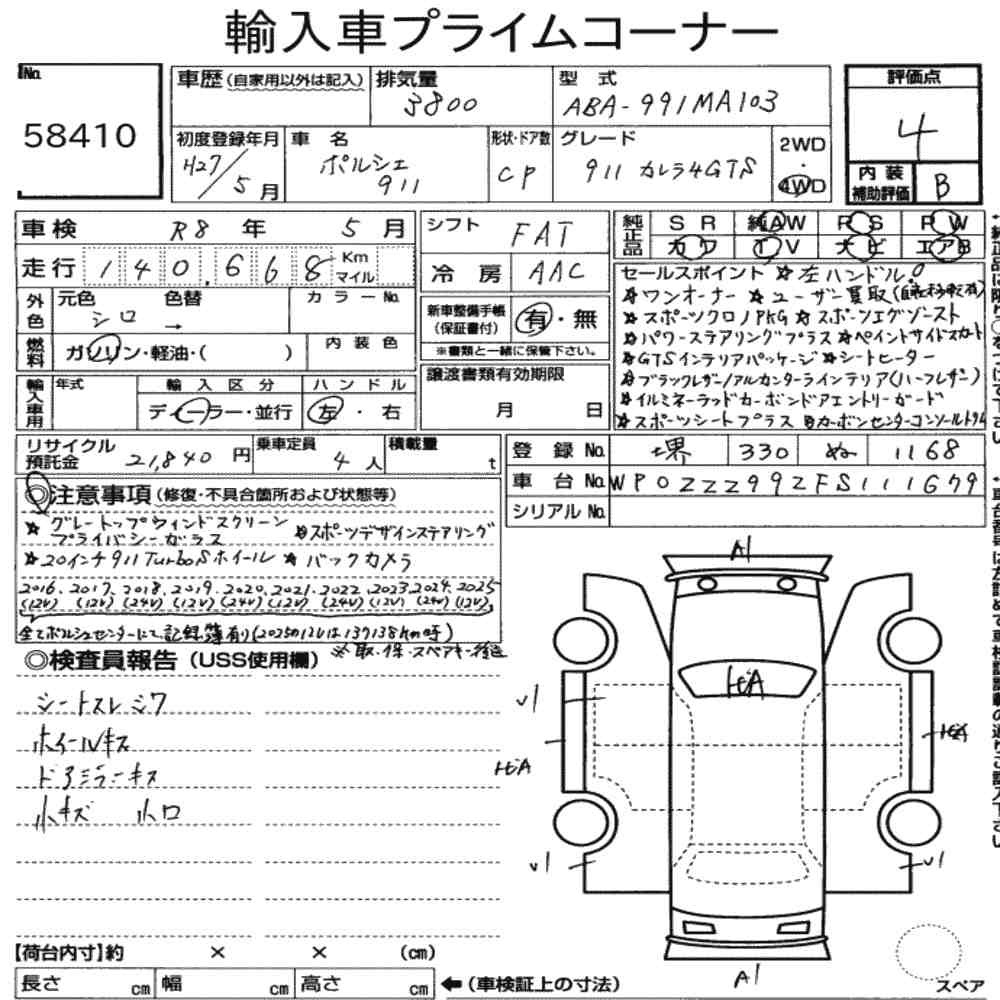 輸入車プライムコーナー
No.
58410
車歴(自家用以外は記入)
排気量
3800
型式
ABA-991MA103
評価点
4
初度登録年月
H27/5月
車名
ポルシェ
911
形状・ドア数
CP
グレード
911 カレラ4GTS
2WD
・
4WD
内装
補助評価
B
車検 R8年 5月
シフト
FAT
純正品
SR 純AW PS PW
カワ TV ナビ エアB
走行 140,668 Km
マイル
冷房
AAC
外色
元色 色替
シロ →
カラーNo.
燃料
ガソリン・軽油・( )
内装色
新車整備手帳
(保証書付)
有・無
※書類と一緒に保管下さい。
輸入車用
年式
輸入区分
ディーラー・並行
ハンドル
左・右
譲渡書類有効期限
月 日
セールスポイント ☆左ハンドル
☆ワンオーナー ☆ユーザー買取(自社移転有)
☆スポーツクロノPKG ☆スポーツエグゾースト
☆パワーステアリングプラス ☆ペイントサイドスカート
☆GTSインテリアパッケージ ☆シートヒーター
☆ブラックレザー/アルカンターラインテリア(ハーフレザー)
☆イルミネーテッドカーボンドアエントリーガード
☆スポーツシートプラス ☆カーボンセンターコンソールトリム
リサイクル
預託金
21,840円
乗車定員
4人
積載量
t
登録No. 堺 330 ぬ 1168
車台No. WP0ZZZ99ZFS111679
シリアルNo.
◎注意事項(修復・不具合箇所および状態等)
☆グレートップウィンドスクリーン
プライバシーガラス
☆スポーツデザインステアリング
☆20インチ911TurboSホイール ☆バックカメラ
2016、2017、2018、2019、2020、2021、2022、2023、2024、2025
(12V) (12V) (24V) (12V) (24V) (12V) (24V) (12V) (24V) (12V)
全てポルシェセンターにて記録簿有り(2025の12Vは139138kmの時)
※取・保・スペアキー後送
◎検査員報告(USS使用欄)
シートスレシワ
ホイールキズ
ドアミラーキズ
小キズ 小凹
A1
ヒビA
U1
ヒビA
ヒビA
U1
U1
A1
【荷台内寸】約 × × (cm)
長さ cm 幅 cm 高さ cm
←(車検証上の寸法)
スペア